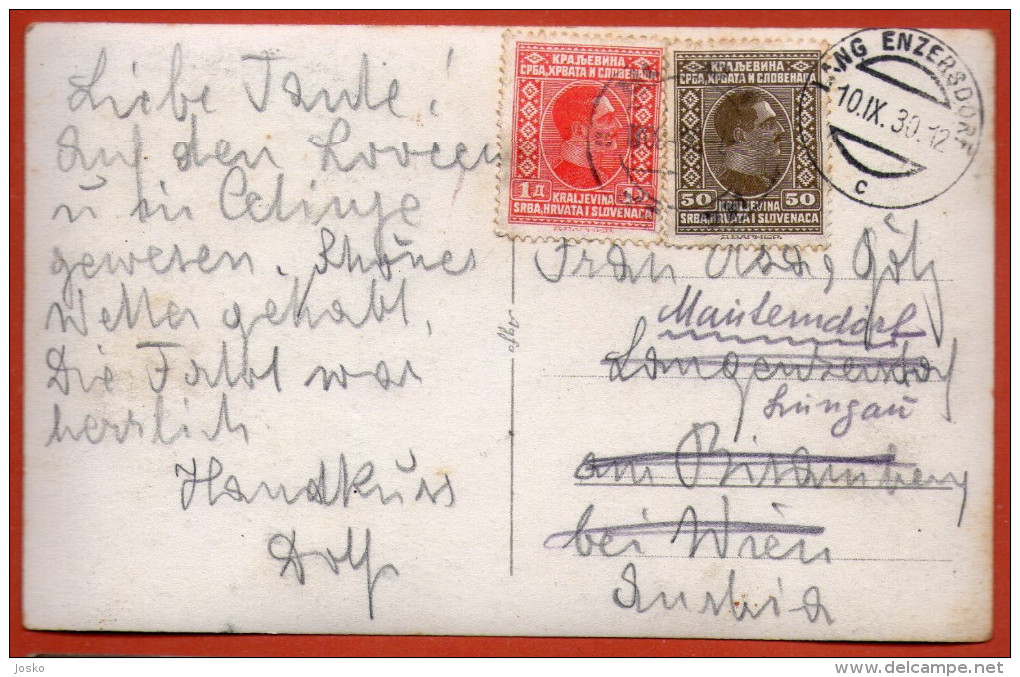 Liebe Tante!
Auf den Lovcen
ū in Cetinje
gewesen. Schönes
Wetter gehabt.
Die Fahrt war
herrlich
Handkuss
Dolf
КРАЉЕВИНА
СРБА, ХРВАТА И СЛОВЕНАЦА
1Д
KRALJEVINA
SRBA, HRVATA I SLOVENACA
КРАЉЕВИНА
СРБА, ХРВАТА И СЛОВЕНАЦА
50 50
KRALJEVINA
SRBA, HRVATA I SLOVENACA
LANG ENZERSDORF
10.IX.30.12
C
Frau Götz
Mauterndorf
Langenzersdorf
Lungau
am Bisamberg
bei Wien
Austria
Josko
www.delcampe.net